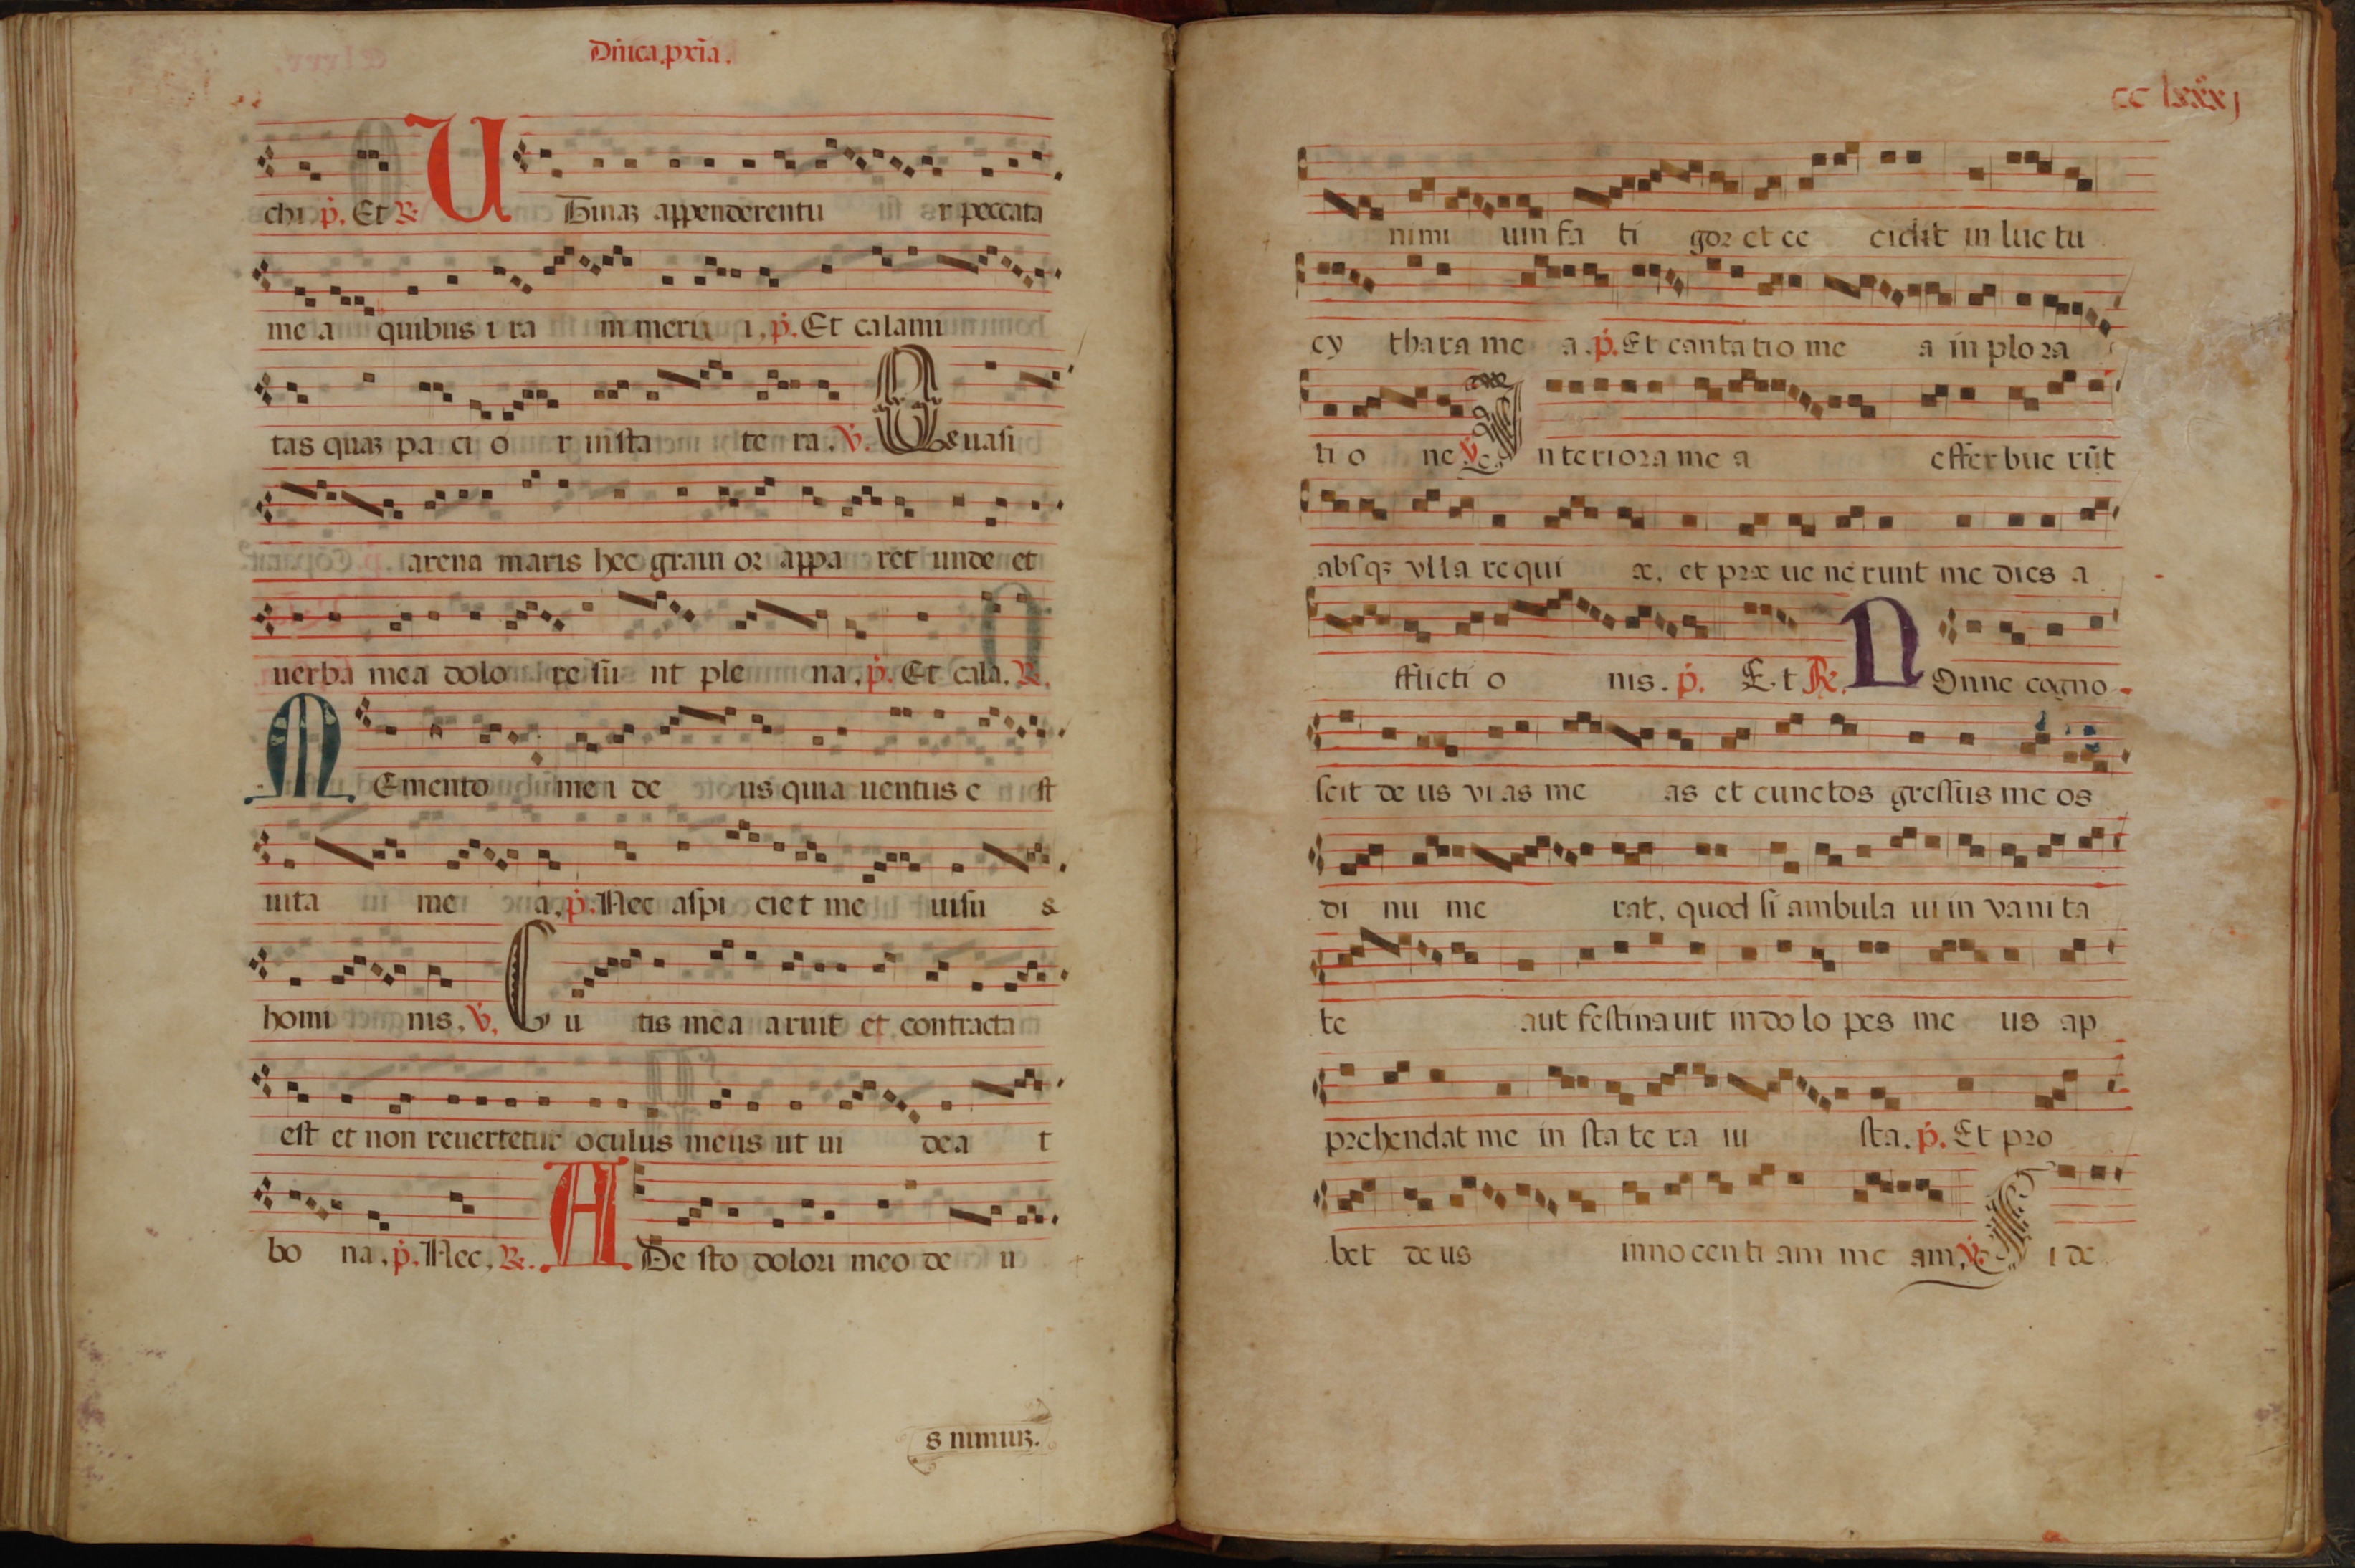 Dñica.pria.
chi. p̄. Et ℟. Utinaʒ appenderentu r peccata
me a quibus i ra m meru i. p̄. Et calami
tas quaʒ pa ci o r in sta te ra. ℣. Quasi
arena maris hec graui or appa ret unde et
uerba mea dolo re su nt ple na. p̄. Et cala. ℟.
Memento mei de us quia uentus e st
uita me a. p̄. Nec aspi ciet me uisu s
homi nis. ℣. Cu tis mea aruit et contracta
est et non reuertetur oculus meus ut ui dea t
bo na. p̄. Nec. ℟. ADe sto dolori meo de u
s nimiuʒ.
cc lxxxj
nimi um fa ti gor et ce cidit in luc tu
cy thara me a. p̄. Et canta tio me a in plo ra
ti o ne ℣. Interiora me a effer bue rūt
absqʒ vlla requi æ, et præ ue ne runt me dies a
fflicti o nis. p̄. Et ℟. DOmne cogno
scit de us vias me as et cunctos gressus me os
di nu me rat, quod si ambula ui in vani ta
te aut festinauit in do lo pes me us ap
prehendat me in sta te ra iu sta. p̄. Et pro
bet de us innocenti am me am, ℣. Si de